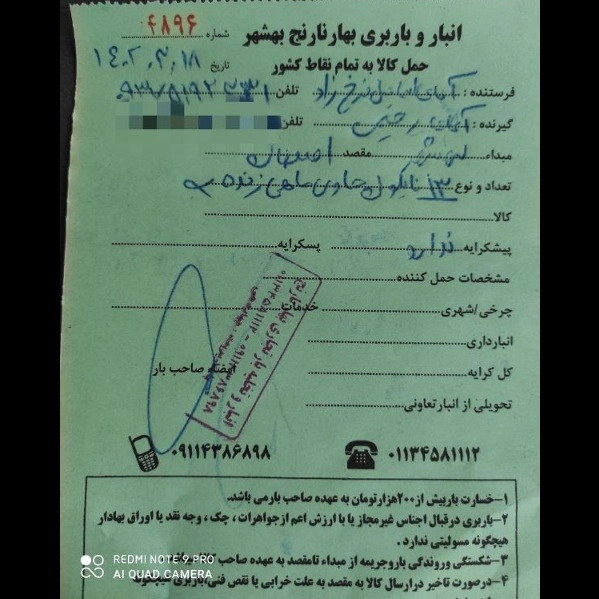 انبار و باربری بهارنارنج بهشهر شماره ۴۸۹۶
حمل کالا به تمام نقاط کشور تاریخ ۱۴۰۲,۳,۱۸
فرستنده : آقای اسماعیل فرخ زاد تلفن
گیرنده : آقای رحیمی تلفن
مبداء بهشهر مقصد اصفهان
تعداد و نوع ۱۳ نایلون حاوی ماهی زنده
کالا
پیشکرایه ندارد پسکرایه
مشخصات حمل کننده
چرخی/شهری خدمات
انبارداری
کل کرایه امضاء صاحب بار
تحویلی از انبارتعاونی
انبار و تخلیه بار تجاری بهارنارنج
۰۱۱۳۴۵۸۱۱۱۲ - ۰۹۱۱۴۳۸۶۸۹۸
۰۱۱۳۴۵۸۱۱۱۲ ۰۹۱۱۴۳۸۶۸۹۸
۱-خسارت باربیش از ۲۰۰هزارتومان به عهده صاحب بارمی باشد.
۲-باربری درقبال اجناس غیرمجاز یا با ارزش اعم ازجواهرات ، چک ، وجه نقد یا اوراق بهادار
هیچگونه مسولیتی ندارد .
۳-شکستگی وروندگی باروجریمه از مبداء تامقصد به عهده صاحب
۴-درصورت تاخیر درارسال کالا به مقصد به علت خرابی یا نقص فنی،باربری هیچگونه
REDMI NOTE 9 PRO
AI QUAD CAMERA